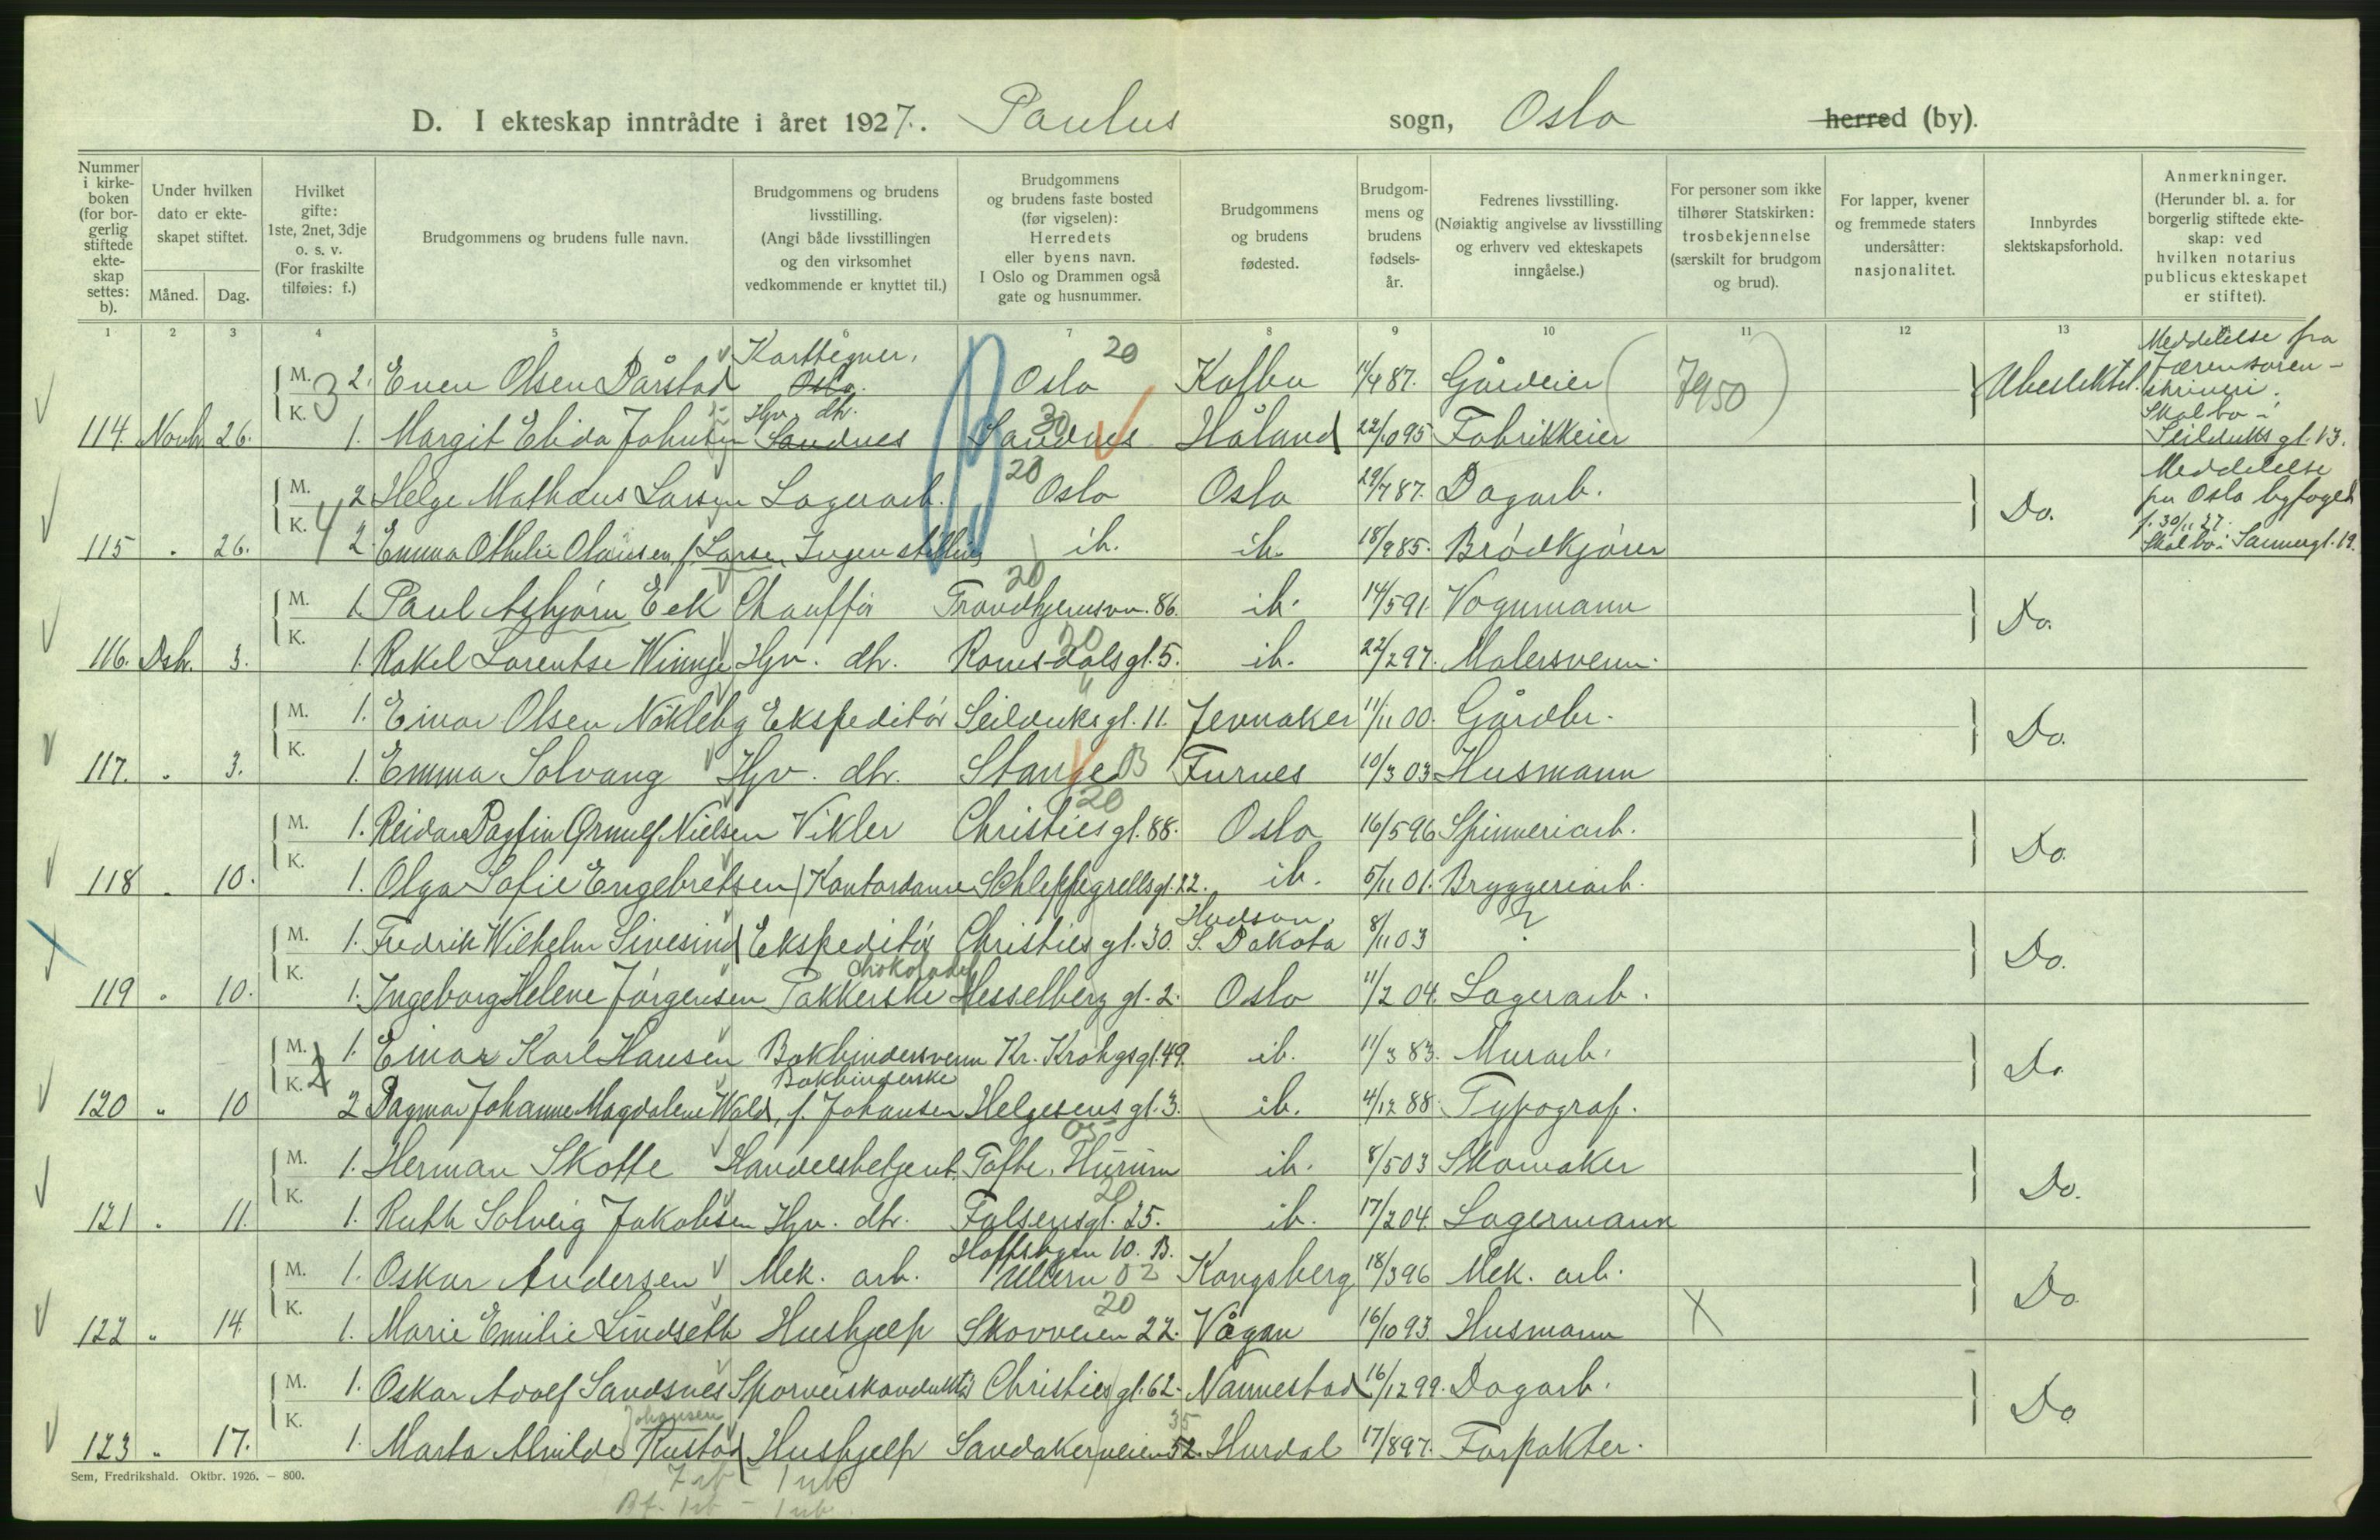 D. I ekteskap inntrådte i året 1927. Paulus sogn, Oslo herred (by).
Nummer i kirkeboken (for borgerlig stiftede ekteskap settes: b).
Under hvilken dato er ekteskapet stiftet.
Måned. Dag.
Hvilket gifte: 1ste, 2net, 3dje o. s. v. (For fraskilte tilføies: f.)
Brudgommens og brudens fulle navn.
Brudgommens og brudens livsstilling. (Angi både livsstillingen og den virksomhet vedkommende er knyttet til.)
Brudgommens og brudens faste bosted (før vigselen): Herredets eller byens navn. I Oslo og Drammen også gate og husnummer.
Brudgommens og brudens fødested.
Brudgommens og brudens fødselsår.
Fedrenes livsstilling. (Nøiaktig angivelse av livsstilling og erhverv ved ekteskapets inngåelse.)
For personer som ikke tilhører Statskirken: trosbekjennelse (særskilt for brudgom og brud).
For lapper, kvener og fremmede staters undersåtter: nasjonalitet.
Innbyrdes slektskapsforhold.
Anmerkninger. (Herunder bl. a. for borgerlig stiftede ekteskap: ved hvilken notarius publicus ekteskapet er stiftet).
1 2 3 4 5 6 7 8 9 10 11 12 13
M. 2. Even Olsen Dårstad Karttegner. Oslo. Oslo 20 Kolbu 11/4 87. Gårdeier (7950) Ubeslektet. Meddelelse fra Jæren sorenskriveri. Skal bo i Seilduksgt. 13.
114. Novb. 26. K. 3 1. Margit Elida Johnsen Hjv. dtr. Sandnes Sandnes 30 Håland 22/10 95 Fabrikkeier
M. 2 Helge Mathæus Larsen Lagerarb. 20 Oslo Oslo 29/7 87. Dagarb. Do. Meddelelse fra Oslo byfoged f. 30/11 27. Skal bo i Sannergt. 19.
115 " 26. K. 4 2. Emma Othelie Olausen, f. Larsen Ingen stilling ib. ib. 18/9 85. Brødkjører
M. 1. Paul Asbjørn Eek Chauffør 20 Trondhjemsvn. 86. ib. 14/5 91. Vognmann Do.
116. Dsb. 3. K. 1. Rakel Lorentse Winnge Hjv. dtr. Romsdalsgt. 5. 20 ib. 22/2 97. Malersvenn.
M. 1. Einar Olsen Nökleby Ekspeditør Seilduksgt. 11. Jevnaker 11/11 00. Gårdbr. Do.
117. " 3. K. 1. Emma Solvang Hjv. dtr. Stange B Furnes 10/3 03 Husmann
M. 1. Reidar Dagfin Ørnulf Nielsen Vikler 20 Christiesgt. 88. Oslo 16/5 96 Spinneriarb. Do.
118 " 10. K. 1. Olga Sofie Engebretsen Kontordame Schleppegrellsgt. 22. ib. 5/11 01. Bryggeriarb.
M. 1. Fredrik Wilhelm Sivesind Ekspeditør Christiesgt. 30. Hudson, S. Dakota 8/11 03 ? Do.
119 " 10. K. 1. Ingeborg Helene Jørgensen Chokolade Pakkerske Hesselberggt. 2. Oslo 11/2 04. Lagerarb.
M. 1. Einar Karl Hansen Bokbindersvenn Kr. Krohgsgt. 49. ib. 11/3 83. Murarb. Do.
120 " 10 K. 2 2 Dagmar Johanne Magdalene Wold, f. Johansen Bokbinderske Helgesensgt. 3. ib. 4/12 88. Typograf.
M. 1. Herman Skotte Handelsbetjent. Tofte, Hurum ib. 8/5 03 Skomaker Do.
121 " 11. K. 1. Ruth Solveig Jakobsen Hjv. dtr. 20 Falsensgt. 25. ib. 17/2 04. Lagermann
M. 1. Oskar Andersen Mek. arb. Hoffsbyen 10. B. Ullern 02 Kongsberg 18/3 96 Mek. arb. Do.
122 " 14. K. 1. Marie Emilie Lindseth Hushjelp 20 Skovveien 22. Vågan 16/10 93. Husmann X
M. 1. Oskar Adolf Sandsnes Sporveiskonduktør Christiesgt. 62. Nannestad 16/12 99. Dagarb. Do.
123 " 17. K. 1. Marta Alvilde Johansen Rustad Hushjelp Sandakerveien 52. 35 Hurdal 17/8 97. Forpakter.
Sem, Fredrikshald. Oktbr. 1926. — 800.